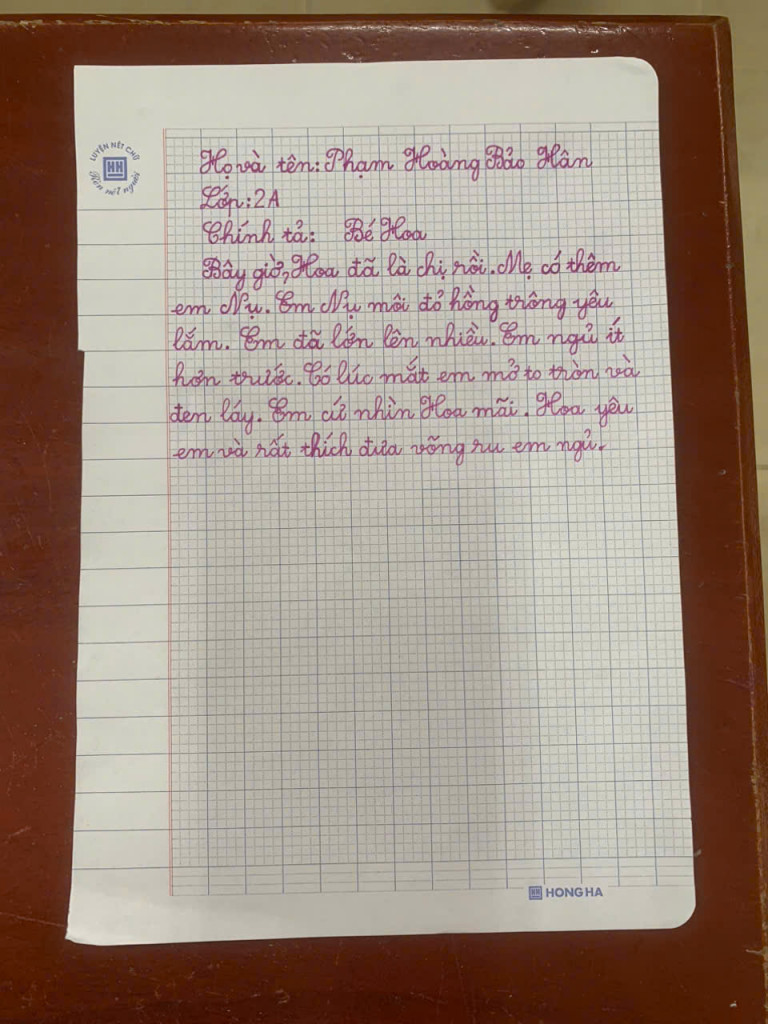 LUYỆN NÉT CHỮ
HH
Rèn nét người
Họ và tên: Phạm Hoàng Bảo Hân
Lớp: 2A
Chính tả: Bé Hoa
Bây giờ, Hoa đã là chị rồi. Mẹ có thêm
em Nụ. Em Nụ môi đỏ hồng trông yêu
lắm. Em đã lớn lên nhiều. Em ngủ ít
hơn trước. Có lúc mắt em mở to tròn và
đen láy. Em cứ nhìn Hoa mãi. Hoa yêu
em và rất thích đưa võng ru em ngủ.
HH HONG HA